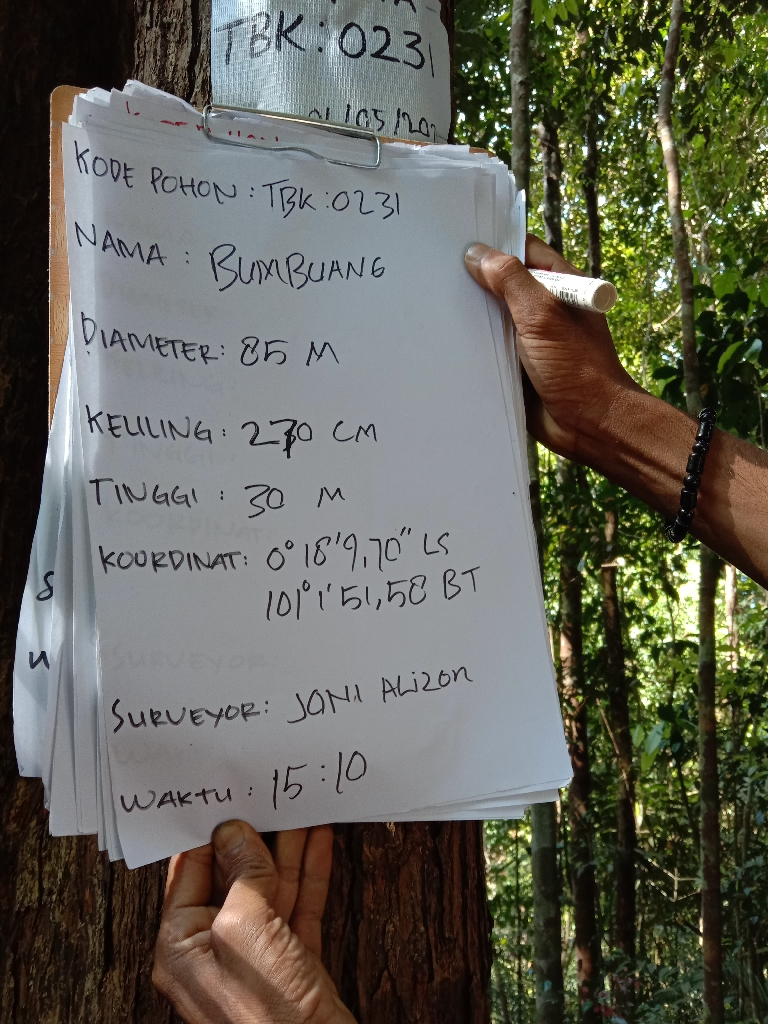 TBK: 0231
01/05/202
KODE POHON : TBK :0231
NAMA : BUMBUANG
DIAMETER: 85 M
KELILING: 270 CM
TINGGI : 30 M
KOORDINAT: 0° 18'9,70" LS
101° 1'51,58 BT
SURVEYOR: JONI ALIZON
WAKTU : 15:10